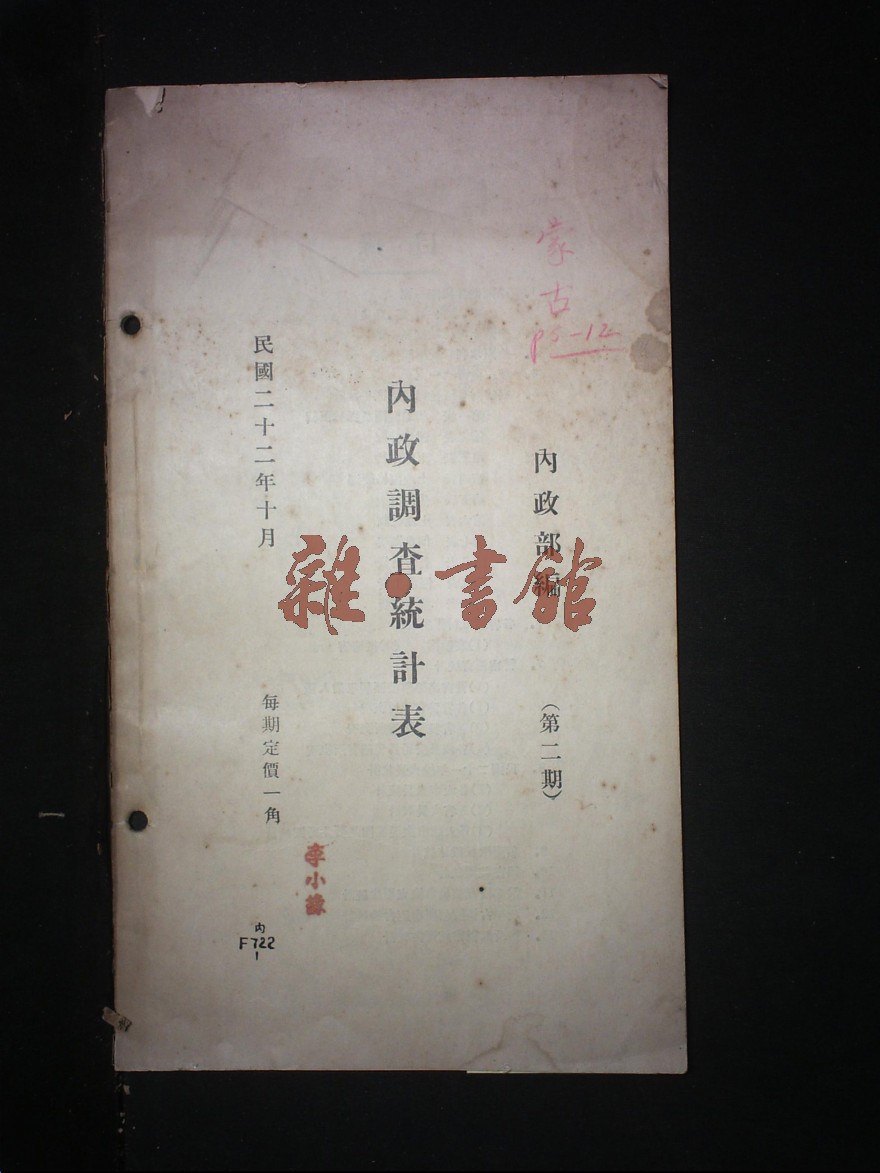 蒙古
P5-12
內政部編 （第二期）
內政調查統計表
民國二十二年十月
每期定價一角
李小謙
內
F722
1
雜·書館